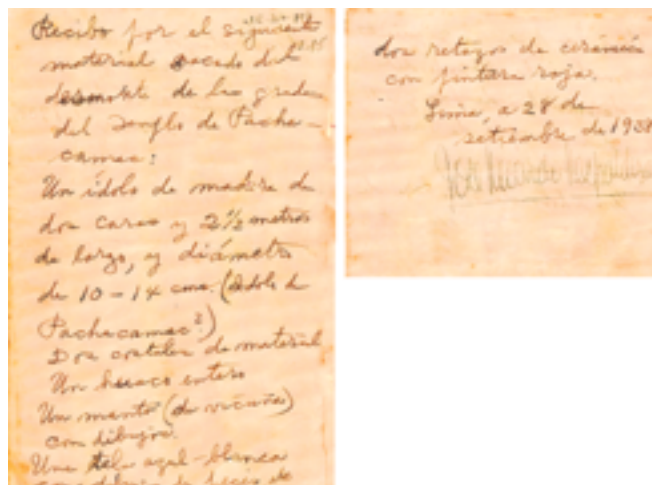 Recibo por el siguiente
material sacado del
desmonte de las gradas
del Templo de Pacha-
camac:
Un ídolo de madera de
dos caras y 2½ metros
de largo, y diámetro
de 10-14 cms. (Ídolo de
Pachacamac?)
Dos costales de material
Un huaco entero
Un manto (de vicuña)
con dibujos.
Una tela azul-blanca
dos retazos de cerámica
con pintura roja.
Lima, a 28 de
setiembre de 1938